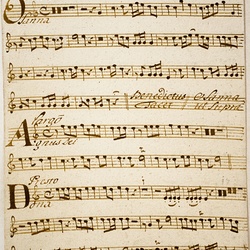 Osanna
Benedictus Osanna
tacet ut supra
Largo
Agnus dei
Presto
Dona